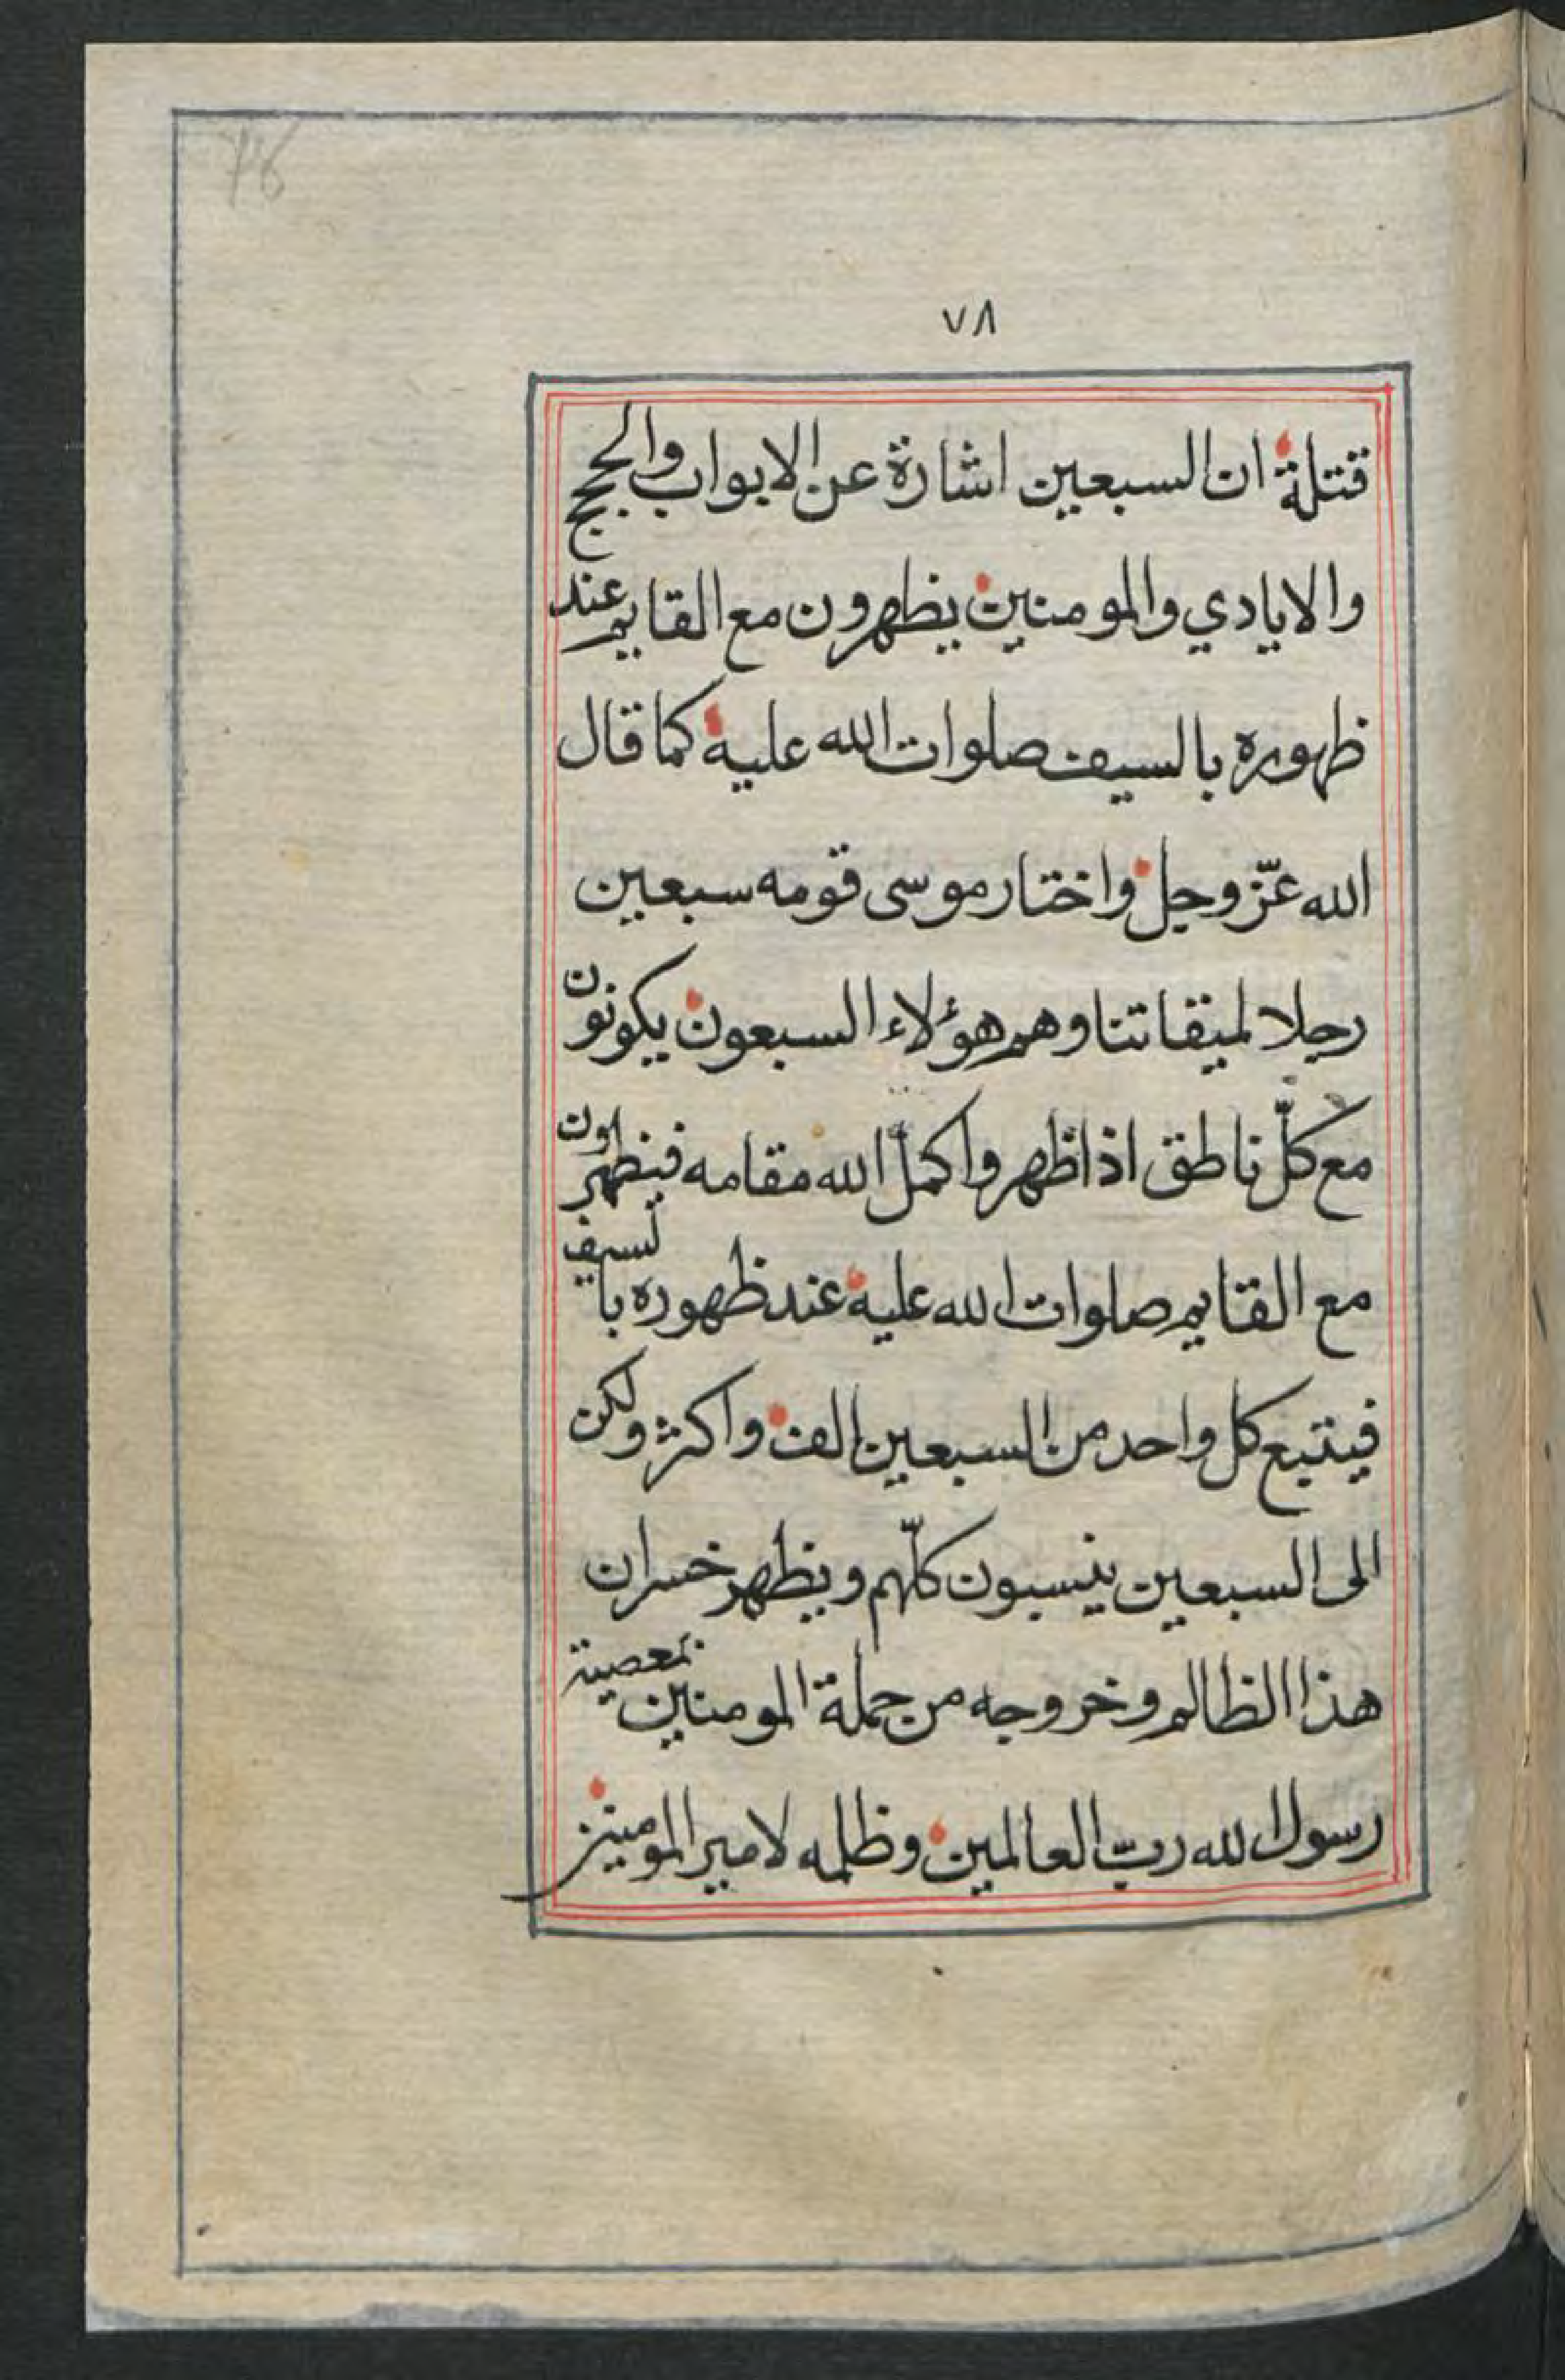 76
٧٨
قتلة ان السبعين اشارة عن الابواب والحجج
والايادي والمومنين يظهرون مع القايم عند
ظهوره بالسيف صلوات الله عليه كما قال
الله عزّ وجل واختار موسى قومه سبعين
رجلا لميقاتنا وهم هؤلاء السبعون يكونون
مع كلّ ناطق اذا ظهر واكملّ الله مقامه فيظهرون
مع القايم صلوات الله عليه عند ظهوره بالسيف
فيتبع كل واحد من السبعين الف واكثر ولكن
الى السبعين ينسبون كلّهم ويظهر خسران
هذا الظالم وخروجه من جملة المومنين بمعصية
رسول الله ربّ العالمين وظلمه لامير المومنين